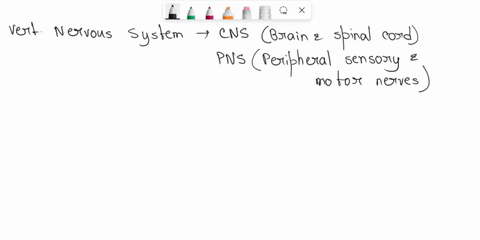 Vert. Nervous System → CNS (Brain & spinal cord)
PNS (Peripheral sensory &
motor nerves)